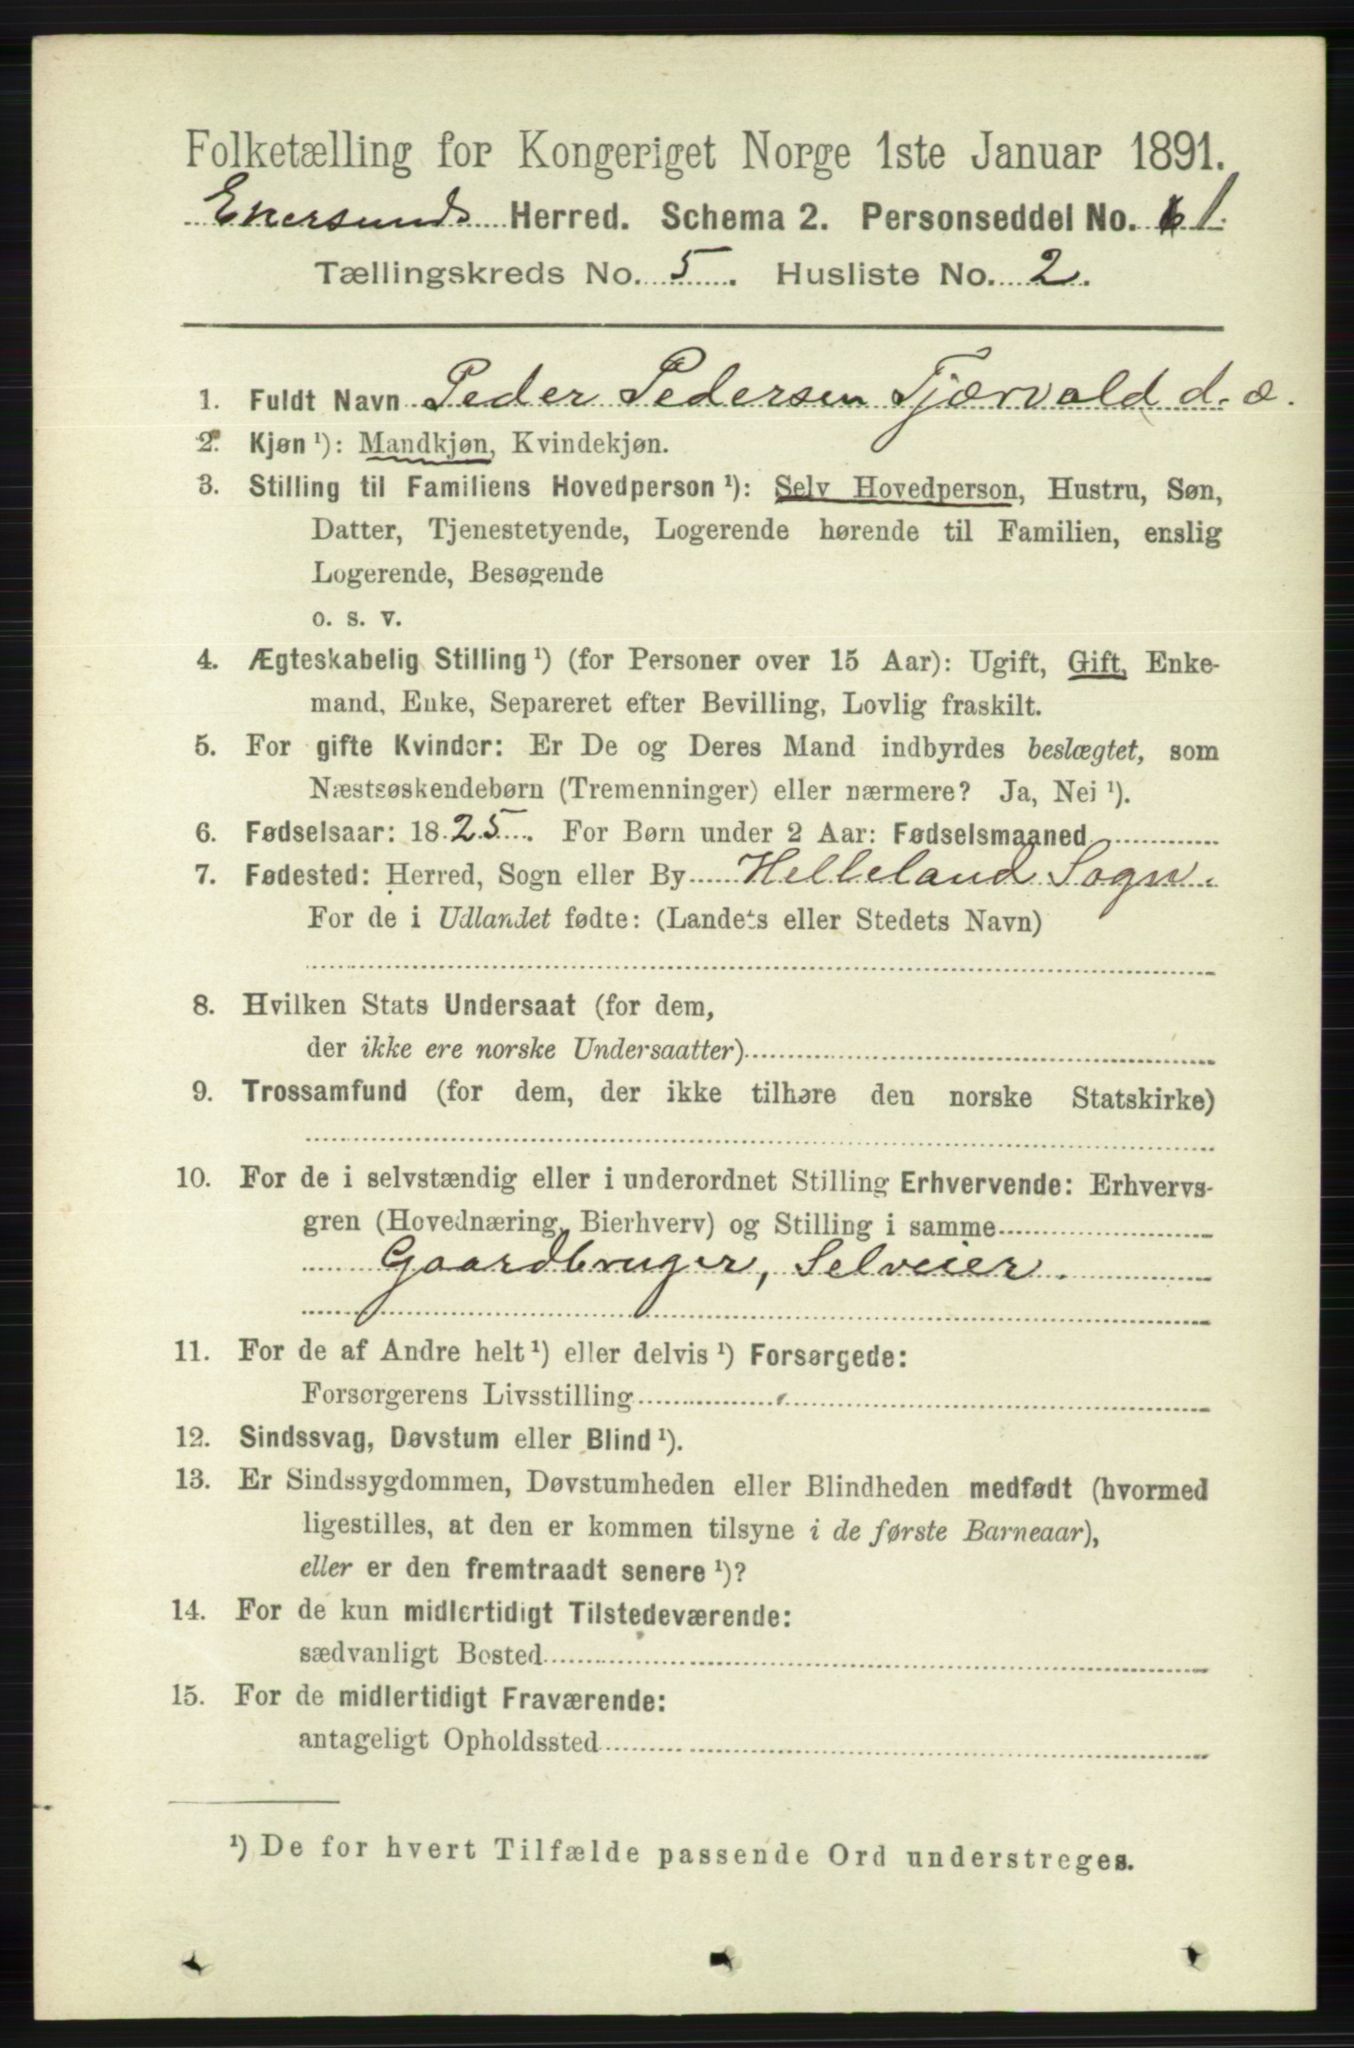 Folketælling for Kongeriget Norge 1ste Januar 1891.
Ekersunds Herred. Schema 2. Personseddel No. 1.
Tællingskreds No. 5. Husliste No. 2.
1. Fuldt Navn Peder Pedersen Tjærvald d. æ.
2. Kjøn ¹): Mandkjøn, Kvindekjøn.
3. Stilling til Familiens Hovedperson ¹): Selv Hovedperson, Hustru, Søn,
Datter, Tjenestetyende, Logerende hørende til Familien, enslig
Logerende, Besøgende
o. s. v.
4. Ægteskabelig Stilling ¹) (for Personer over 15 Aar): Ugift, Gift, Enke-
mand, Enke, Separeret efter Bevilling, Lovlig fraskilt.
5. For gifte Kvinder: Er De og Deres Mand indbyrdes beslægtet, som
Næstsøskendebørn (Tremenninger) eller nærmere? Ja, Nei ¹).
6. Fødselsaar: 1825. For Børn under 2 Aar: Fødselsmaaned
7. Fødested: Herred, Sogn eller By Helleland Sogn.
For de i Udlandet fødte: (Landets eller Stedets Navn)
8. Hvilken Stats Undersaat (for dem,
der ikke ere norske Undersaatter)
9. Trossamfund (for dem, der ikke tilhøre den norske Statskirke)
10. For de i selvstændig eller i underordnet Stilling Erhvervende: Erhvervs-
gren (Hovednæring, Bierhverv) og Stilling i samme
Gaardbruger, Selveier.
11. For de af Andre helt ¹) eller delvis ¹) Forsørgede:
Forsørgerens Livsstilling
12. Sindssvag, Døvstum eller Blind ¹).
13. Er Sindssygdommen, Døvstumheden eller Blindheden medfødt (hvormed
ligestilles, at den er kommen tilsyne i de første Barneaar),
eller er den fremtraadt senere ¹)?
14. For de kun midlertidigt Tilstedeværende:
sædvanligt Bosted
15. For de midlertidigt Fraværende:
antageligt Opholdssted
¹) De for hvert Tilfælde passende Ord understreges.